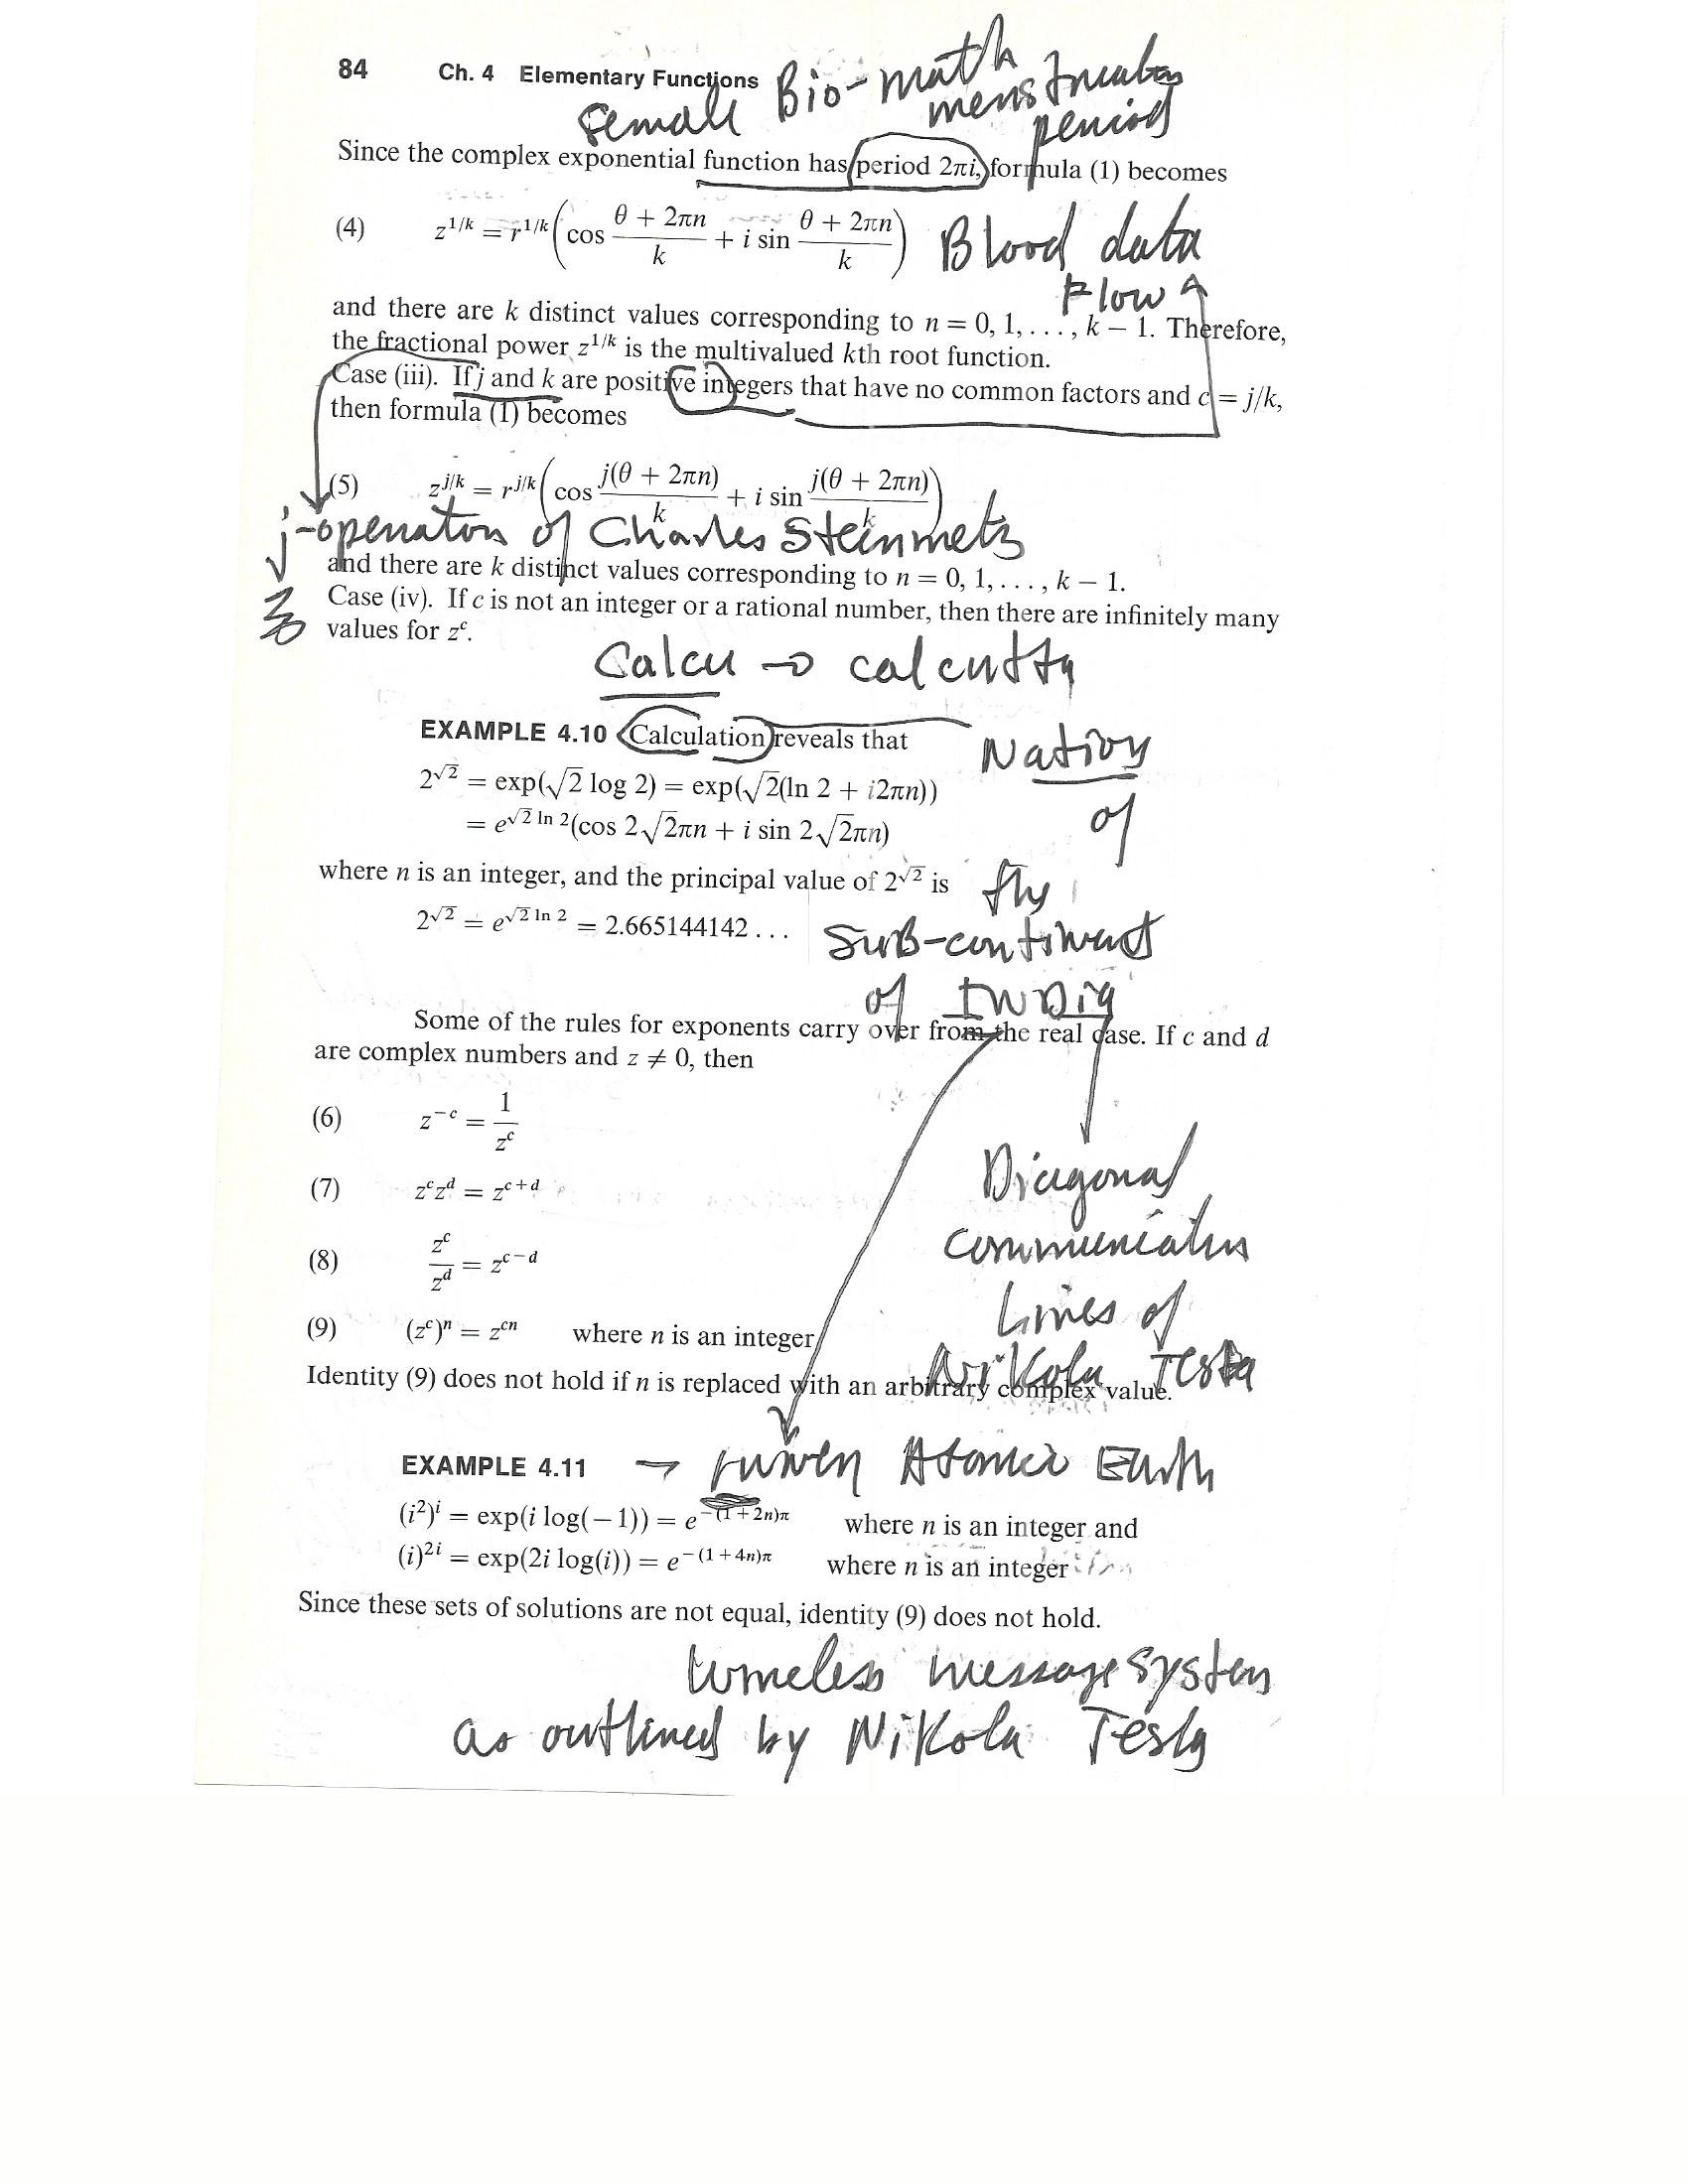 84 Ch. 4 Elementary Functions
Bio-math
menstruation
Female
period
Since the complex exponential function has period 2πi, formula (1) becomes
(4) z^{1/k} = r^{1/k}(cos (θ + 2πn)/k + i sin (θ + 2πn)/k)
Blood data
Flow
and there are k distinct values corresponding to n = 0, 1, . . . , k − 1. Therefore,
the fractional power z^{1/k} is the multivalued kth root function.
Case (iii). If j and k are positive integers that have no common factors and c = j/k,
then formula (1) becomes
(5) z^{j/k} = r^{j/k}(cos j(θ + 2πn)/k + i sin j(θ + 2πn)/k)
j-operator of Charles Steinmetz
and there are k distinct values corresponding to n = 0, 1, . . . , k − 1.
Case (iv). If c is not an integer or a rational number, then there are infinitely many
values for z^c.
Calcu → calcutta
EXAMPLE 4.10 Calculation reveals that
Nation
2^{√2} = exp(√2 log 2) = exp(√2(ln 2 + i2πn))
= e^{√2 ln 2}(cos 2√2πn + i sin 2√2πn)
of
where n is an integer, and the principal value of 2^{√2} is
the
2^{√2} = e^{√2 ln 2} = 2.665144142 . . .
SUB-continent
of INDIA
Some of the rules for exponents carry over from the real case. If c and d
are complex numbers and z ≠ 0, then
(6) z^{−c} = 1/z^c
(7) z^c z^d = z^{c+d}
Diagonal
communication
(8) z^c/z^d = z^{c−d}
Lines of
(9) (z^c)^n = z^{cn} where n is an integer
Nikola Tesla
Identity (9) does not hold if n is replaced with an arbitrary complex value.
EXAMPLE 4.11 → Atomic Earth
(i²)^i = exp(i log(−1)) = e^{−(1+2n)π} where n is an integer and
(i)^{2i} = exp(2i log(i)) = e^{−(1+4n)π} where n is an integer
Since these sets of solutions are not equal, identity (9) does not hold.
message system
as outlined by Nikola Tesla